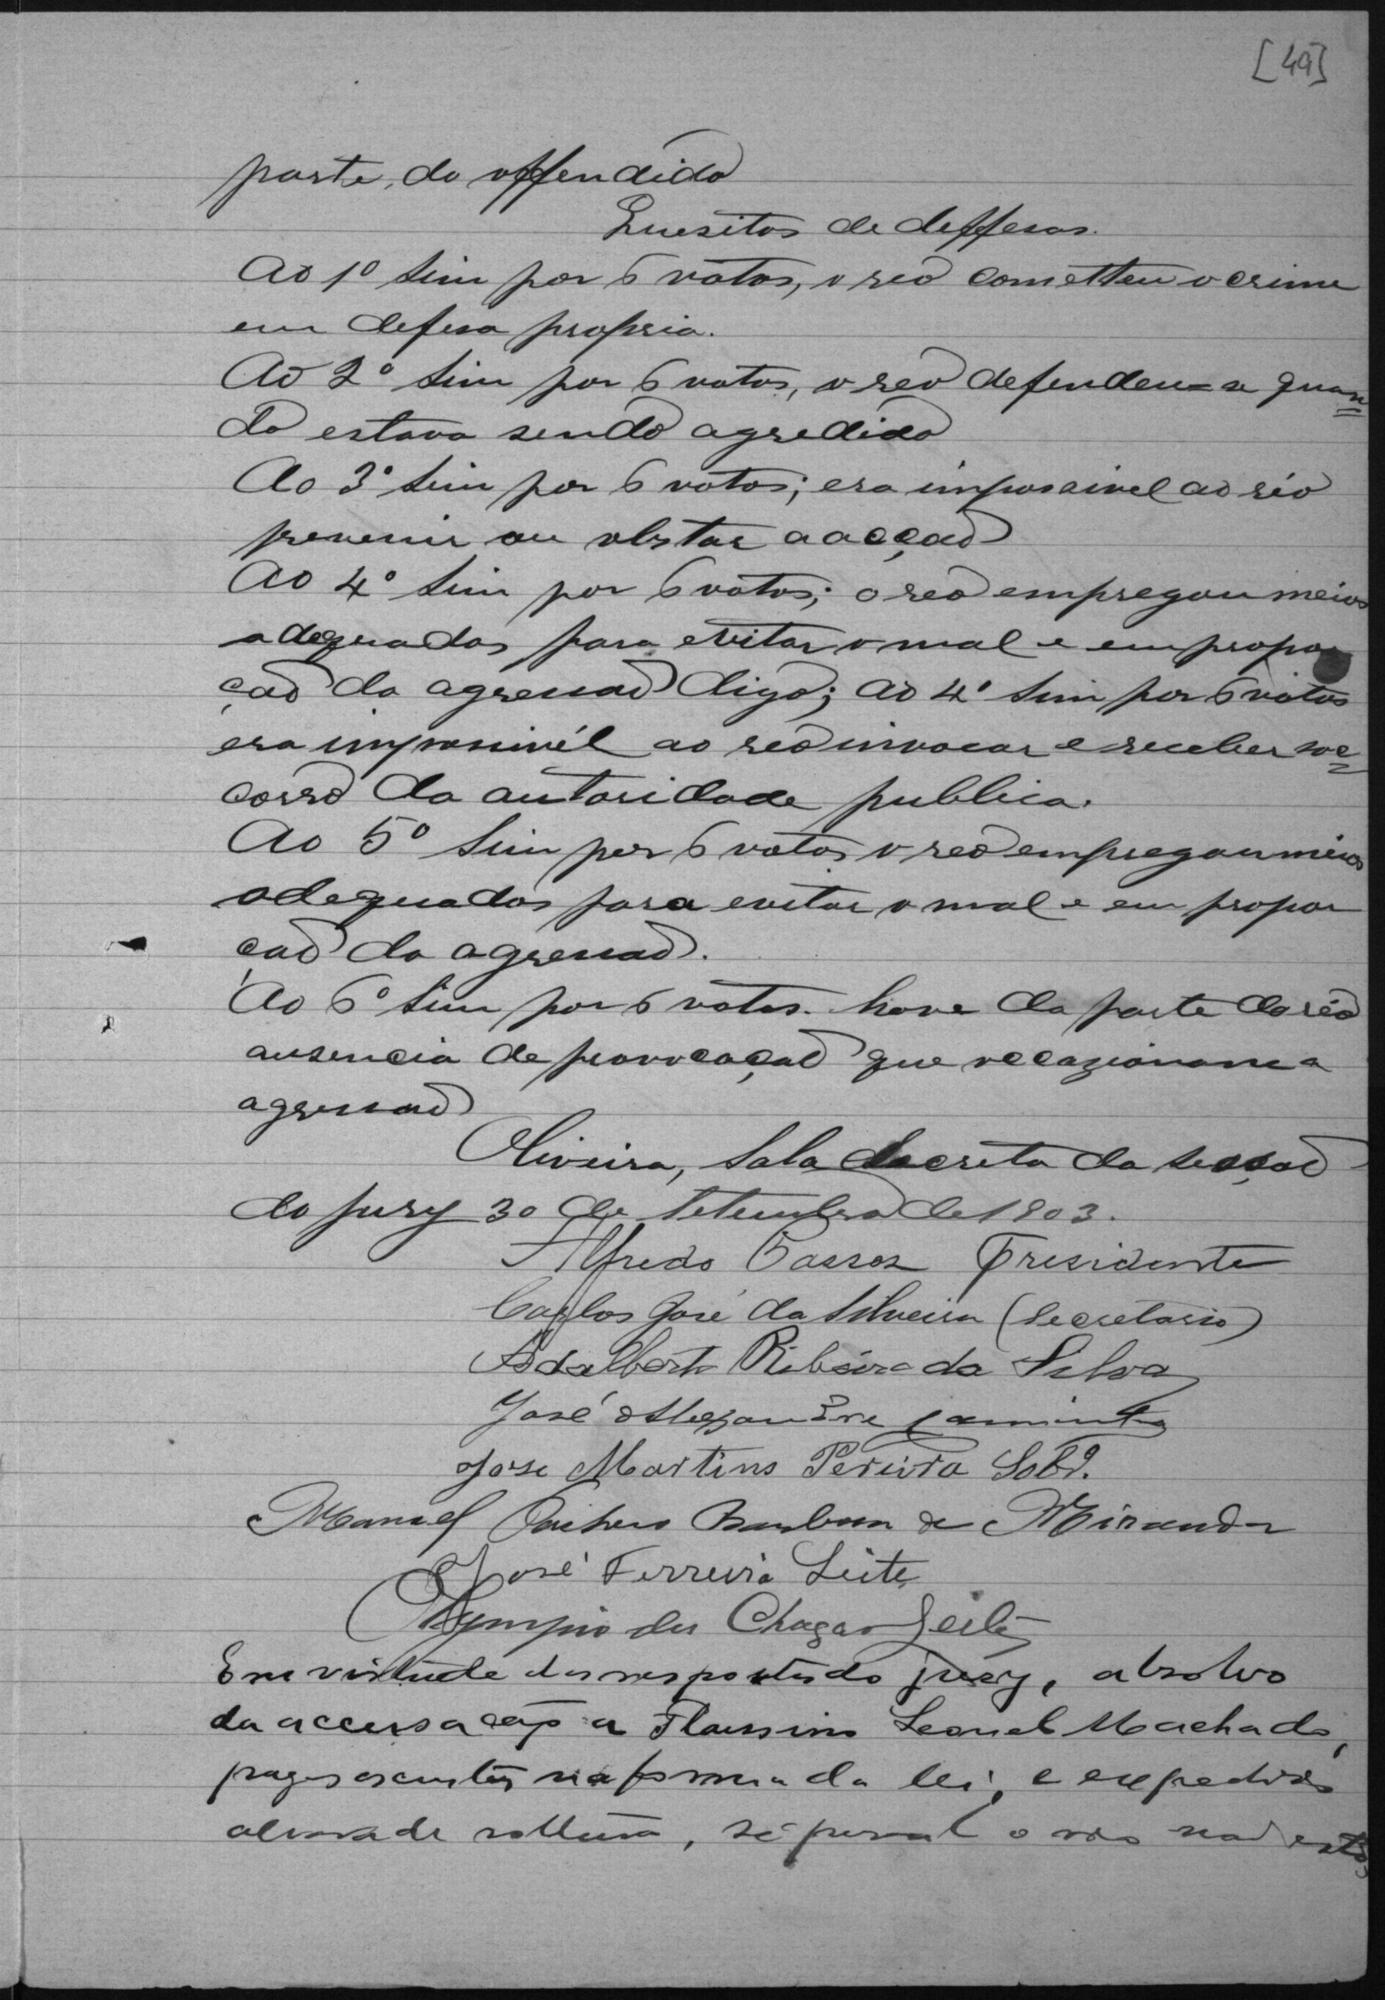 [49]
parte, do offendido
Quesitos de deffesas.
Ao 1º Sim por 6 votos, o reo cometteu o crime
em defesa propria.
Ao 2º Sim por 6 votos, o reo defendeu=se quan=
do estava sendo agredido
Ao 3º Sim por 6 votos; era impossivel ao réo
prevenir ou obstar a acçaõ
Ao 4º Sim por 6 votos; o reo empregou meios
adequados para evitar o mal e em propor
çaõ da agressaõ digo; ao 4º Sim por 6 votos
era impossivél ao reo invocar e receber soc=
corro da autoridade publica.
Ao 5º Sim por 6 votos o reo empregou meios
adequados para evitar o mal e em propor
çaõ da agressaõ.
Ao 6º Sim por 6 votos. houve da parte do réo
ausencia de provocaçaõ que occazionasse a
agressaõ
Oliveira, Sala Secreta da Sessaõ
do jury 30 de Setembro de 1903.
Alfredo Passos Presidente
Carlos José da Silveira (Secretario)
Adalberto Ribeiro da Silva
José Alexandre
Jose Martins Pereira Sobrº.
Manuel de Miranda
José Ferreira Leite
Olympio das Chagas Leite
Em virtude das respostas do jury, absolvo
da accusação a Leonel Machado,
pagas as custas na forma da lei, e expedido
alvará de soltura, se por al o reo naõ esta